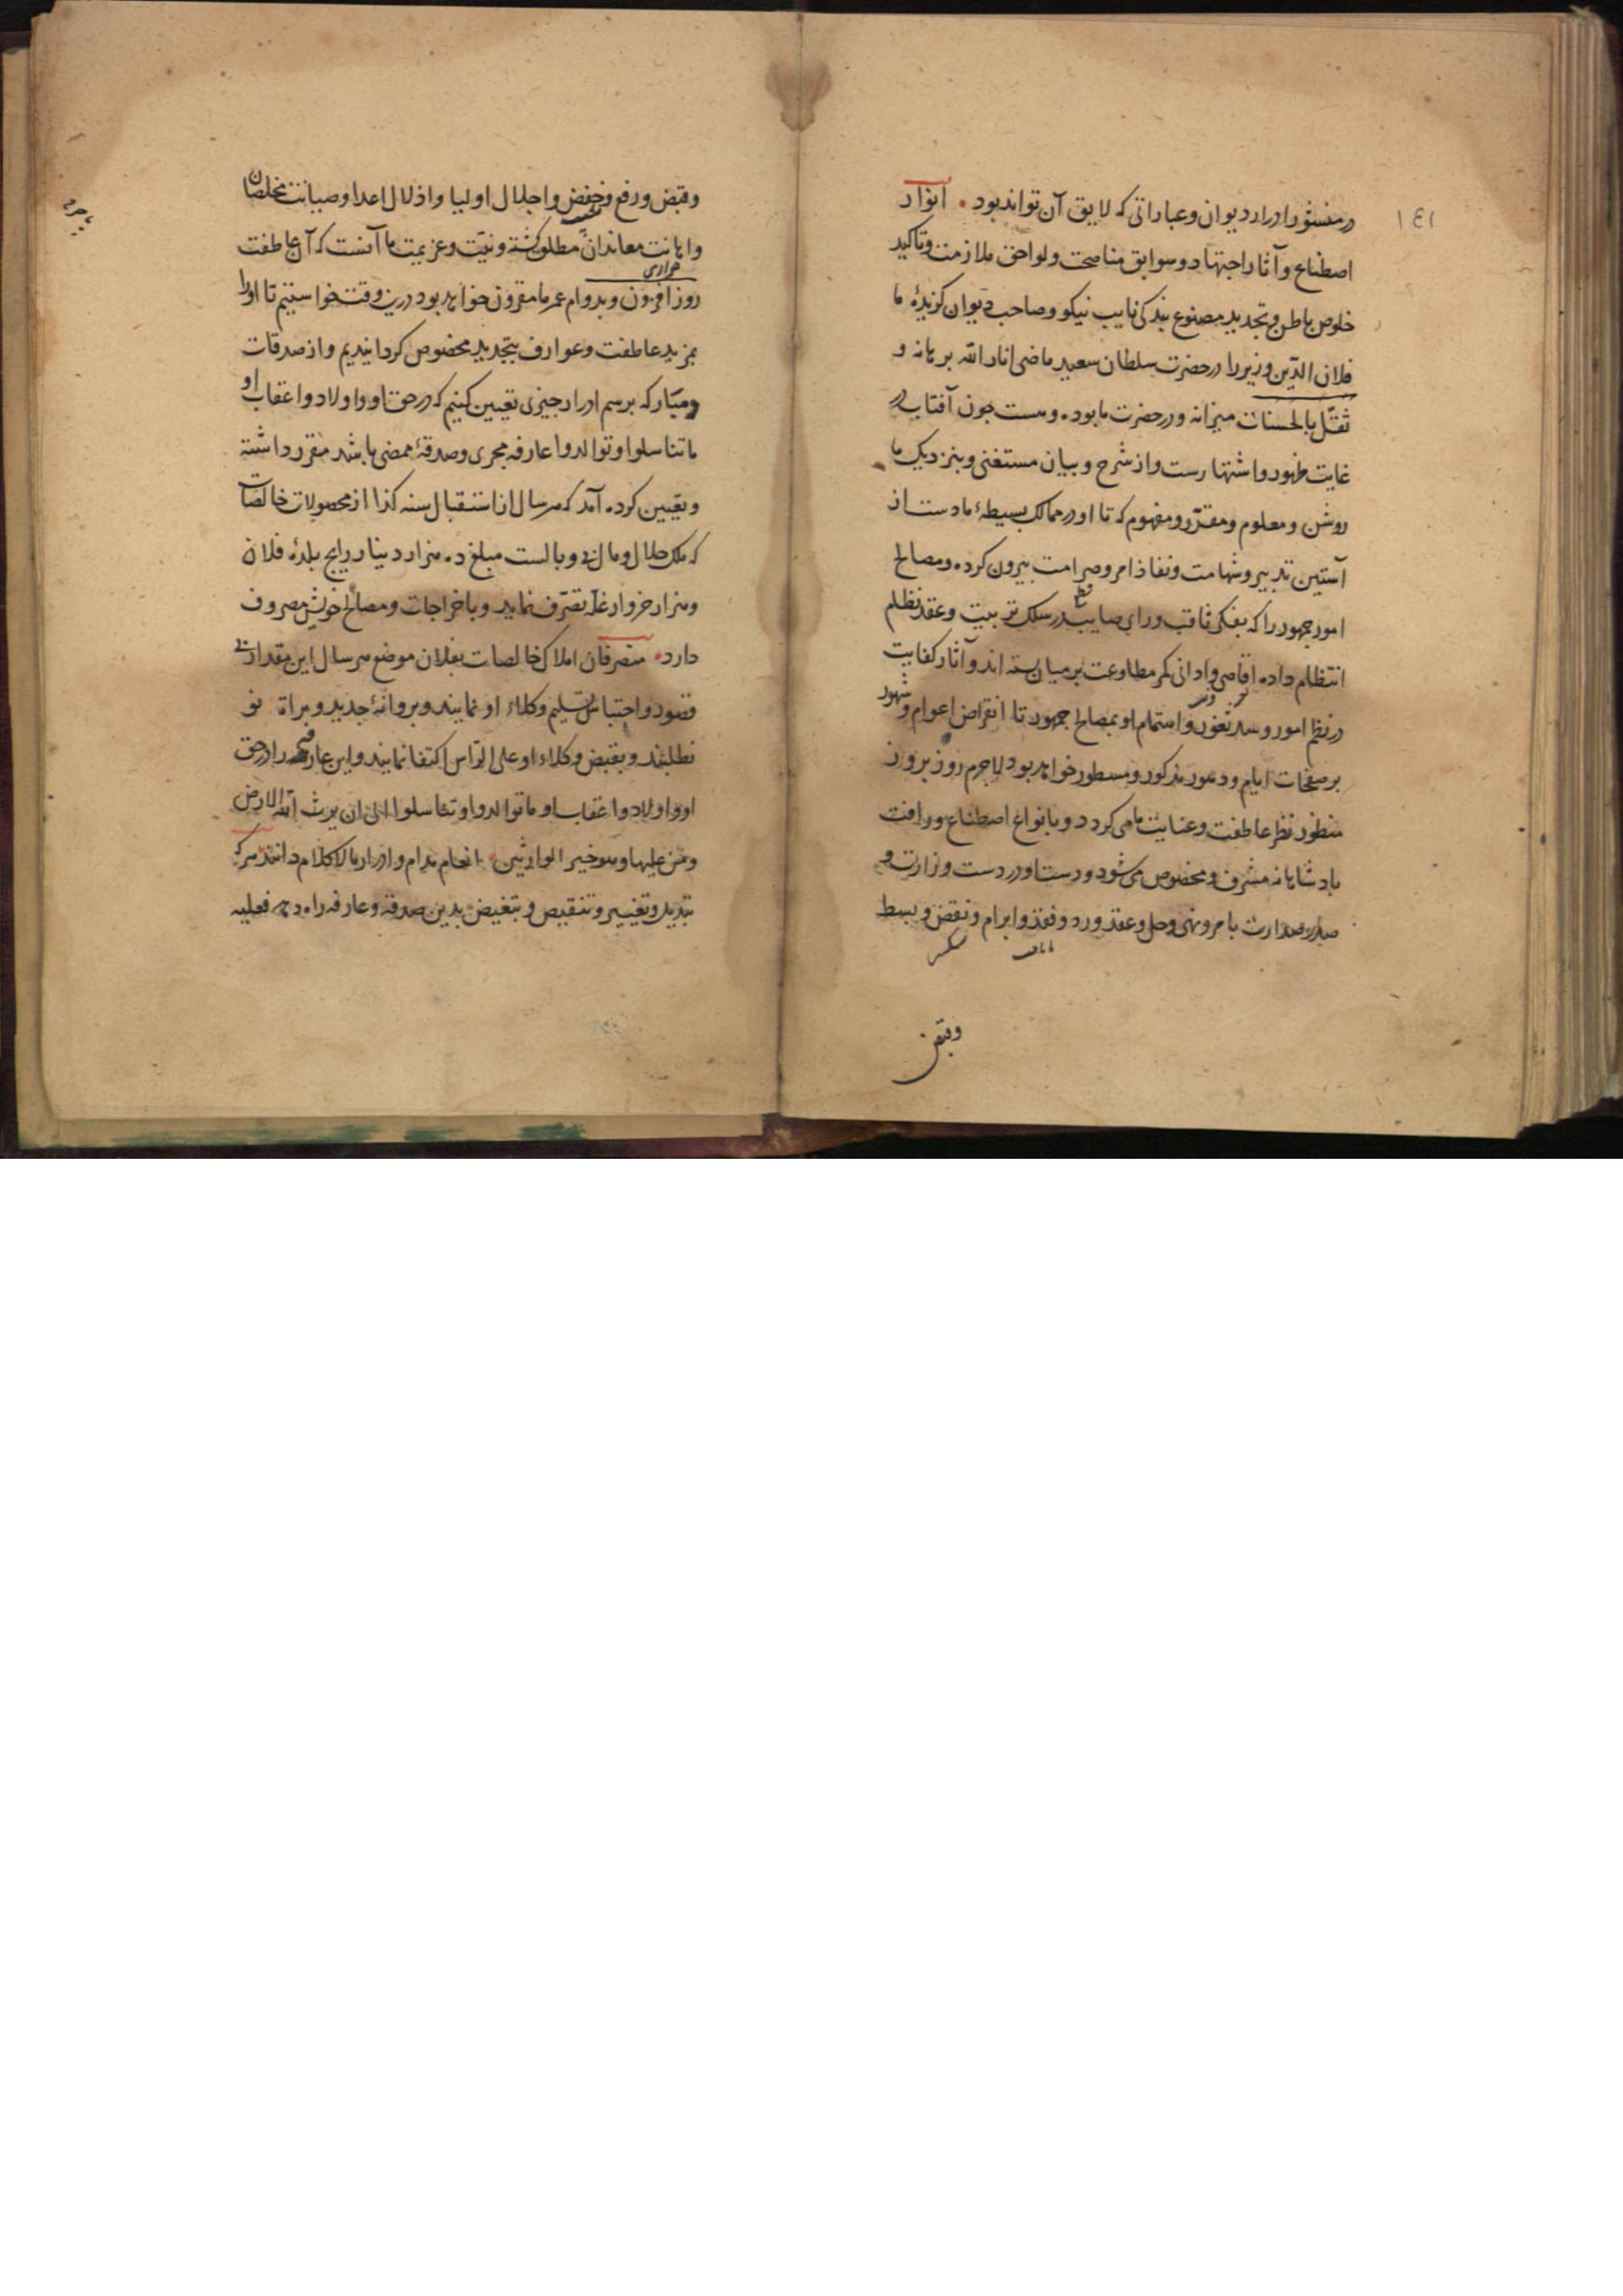 ١٤١
در منشور ادرار دیوان و عباراتی که لایق آن تواند بود • انوار
اصطناع و آثار اجتهاد و سوابق مناصحت و لواحق ملازمت و تاکید
خلوص باطن و تجدید مصنوع بندکی نایب نیکو و صاحب دیوان کزیدهٔ ما
فلان الدّین وزیر را در حضرت سلطان سعید ماضی انار اللّه برهانه و
ثقّل بالحسنات میزانه و در حضرت ما بوده و هست جون آفتاب در
غایت ظهور و اشتهارست و از شرح و بیان مستغنی و بنزدیک ما
روشن و معلوم و مقرّر و مفهوم که تا او در ممالک بسیطهٔ ما دست از
آستین تدبیر و شهامت و نفاذ امر و صرامت بیرون کرده و مصالح
امور جمهور را که بفکر ثاقب و رای صایب در سلک تربیت و عقد نظام
انتظام داده اقاصی و ادانی کمر مطاوعت بر میان بسته اند و آثار کفایت
در نظم امور و سد ثغور و اهتمام او بمصالح جمهور تا انقراض اعوام و شهور
بر صفحات ایام و دهور مذکور و مسطور خواهد بود لاجرم روز بروز
منظور نظر عاطفت و عنایت ما می کردد و بانواع اصطناع و رافت
بادشاهانه مشرف و مخصوص می شود و دست او در دست وزارت و
صدر صدارت بامر و نهی و حل و عقد و رد و فقد و ابرام و نقض و بسط
وقبض
وقبض و رفع و خفض و اجلال اولیا و اذلال اعدا و صیانت مخلصان
و اهانت معاندان مطلق کشته و نیّت و عزیمت ما آنست که آن عاطفت
روز افزون و بدوام عمر ما مقرون خواهد بود درین وقت خواستیم تا او را
بمزید عاطفت و عوارف بتجدید مخصوص کردانیدیم و از صدقات
و مبّار که برسم ادرار جیزی تعیین کنیم که در حق او و اولاد و اعقاب او
ما تناسلوا و توالدوا عارفهٔ مجری و صدقهٔ ممضی باشد مقرر داشته
و تعیین کرده آمد که هر سال از استقبال سنه کذا از محصولات خالصات
که ملک حلال و مال بی وبالست مبلغ ده هزار دینار رایج بلدهٔ فلان
و هزار خروار غلّه تصرّف نماید و باخراجات و مصالح خویش مصروف
دارد • متصرفان املاک خالصات بفلان موضع هر سال این مقدار بی
قصور و احتباس تسلیم وکلاء او نمایند و بروانهٔ جدید و براة نو
نطلبند و بقبض وکلاء او علی الرّاس اکتفا نمایند و این عارفه را در حق
او و اولاد و اعقاب او ما توالدوا و تناسلوا الی ان یرث اللّه الارض
و من علیها و هو خیر الوارثین • انعام مدام و ادرار مالا کلام دانند هر که
تبدیل و تغییر و تنقیص و تبغیض بدین صدقه و عارفه راه دهد فعلیه